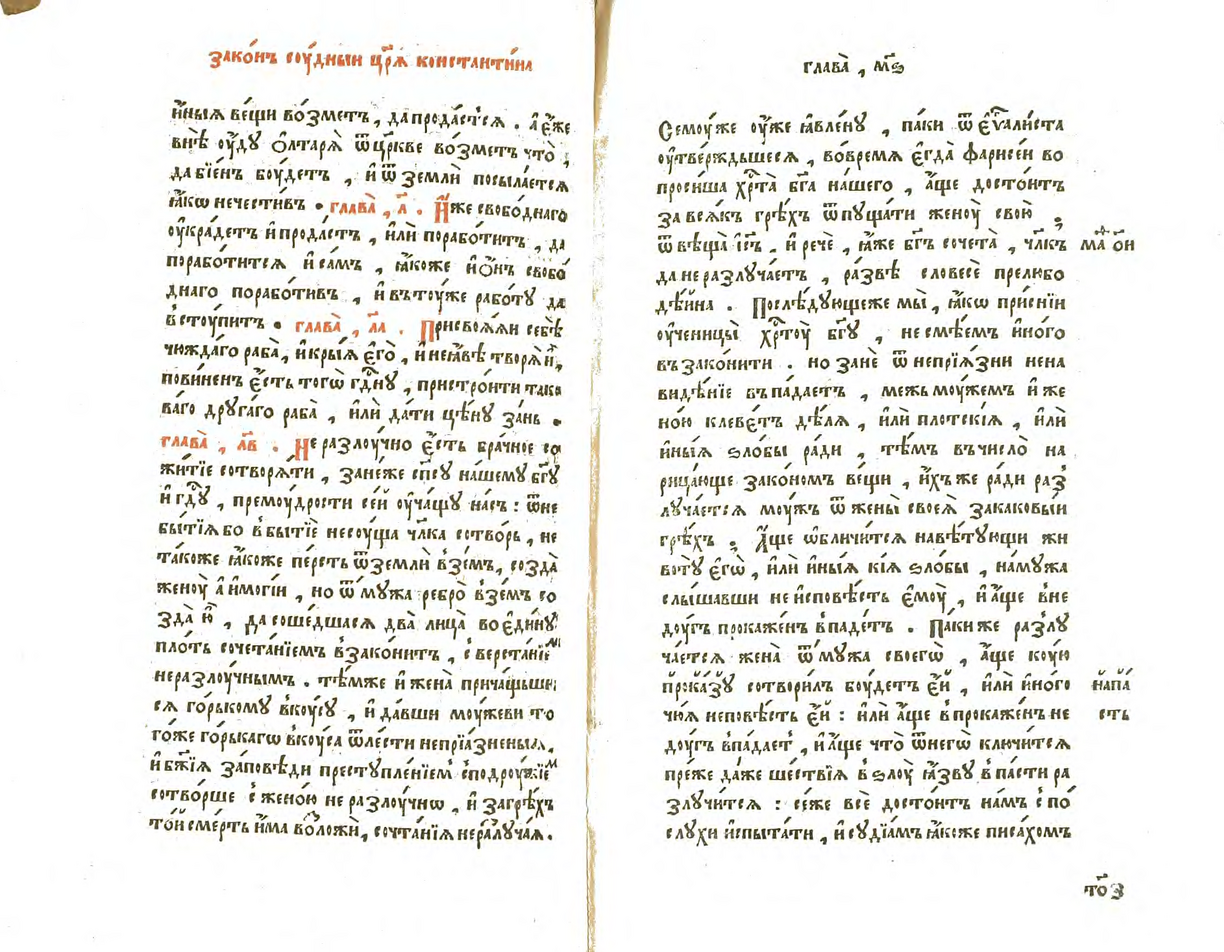 зако́нъ соу́дныи цр҃ѧ̀ константи́на
и҆́ныѧ ве́щи во́зметъ , да прода́стсѧ . а҆ є҆́же
внѣ̀ ѹ҆́ду Ѻ҆лтарѧ̀ ѿ цр҃кве во́зметъ что̀ ,
да бїе́нъ бѹ́детъ , и҆ ѿ землѝ посыла́етсѧ
ꙗ҆́кѡ нечести́въ . глава̀ , л҃ . И҆́же свобо́днаго
ѹ҆кра́детъ и҆ прода́стъ , и҆лѝ порабо́титъ , да
порабо́титсѧ и҆ са́мъ , ꙗ҆́коже и҆ Ѻ҆́нъ свобо́
днаго порабо́тивъ , и҆ въ тѹ́же рабо́ту да
встѹ́питъ . глава̀ , л҃а . Присвоѧ́ѧи себѣ̀
чюжда́го раба̀ , и҆ кры́ѧ є҆го̀ , и҆ не ꙗ҆́вѣ творѧ̀ и҆̀ ,
пови́ненъ є҆́сть тогѡ̀ гд҃ну , пристро́ити тако
ва́го друга́го раба̀ , и҆лѝ да́ти цѣ́ну за́нь .
глава̀ , л҃в . Неразлѹ́чно є҆́сть бра́чное со
жи́тїе сотворѧ́ти , зане́же сп҃су на́шему бг҃у
и҆ гд҃у , премѹ́дрости се́й ѹ҆ча́щу на́съ : ѿ не
бытїѧ́ бо в бытїѐ несѹ́ща чл҃ка сотво́рь , не
та́коже ꙗ҆́коже пе́рсть ѿ землѝ взе́мъ , созда̀
женѹ̀ а҆́ и҆ могі́и , но ѿ мꙋ́жа ребро̀ взе́мъ со
зда̀ ю҆̀ , да соше́дшасѧ два̀ лица̀ во є҆ди́ну
пло́ть сочета́нїемъ взако́нитъ , сверста́нїем
неразлѹ́чнымъ . тѣ́мже и҆ жена̀ прича́щьши
сѧ го́рькому вкѹ́су , и҆ да́вши мѹ́жеви то
го́же го́рькагѡ вкѹ́са ѿ ле́сти непрїа́зненыѧ ,
и҆ бж҃їѧ за́повѣди преступле́нїем споднрѹ́жїем
сотво́рше с жено́ю неразлѹ́чнѡ , и҆ за грѣ́хъ
то́й сме́рть и҆́ма вложѝ , сочта́нїѧ не разлуча́ѧ .
глава̀ , м҃ѕ
Семѹ́же ѹ҆́же ꙗ҆вле́ну , па́ки ѿ є҆ѵⷢ҇али́ста
ѹ҆твержды́шесѧ , во вре́мѧ є҆гда̀ фарисе́и во
проси́ша хр҇та̀ бг҃а на́шего , а҆́ще досто́итъ
за всѧ́къ грѣ́хъ ѿпуща́ти женѹ̀ свою̀ ;
ѿвѣща̀ і҆с҃ъ , и҆ речѐ , ꙗ҆́же бг҃ъ сочета̀ , чл҃къ
да не разлуча́етъ , ра́звѣ словесѐ прелюбо
дѣ́йна . Послѣ́дующеже мы̀ , ꙗ҆́кѡ при́снїи
ѹ҆ченицы̀ хр҇тѹ̀ бг҃у , не смѣ́емъ и҆но́го
възако́нити . но занѐ ѿ непрїѧ́зни нена
ви́дѣнїе въпа́даетъ , межь мѹ́жемъ и҆ же
но́ю клеве́тъ дѣ́лѧ , и҆лѝ пло́тскїѧ , и҆лѝ
и҆ны́ѧ ѕло́бы ра́ди , тѣ́мъ въ число̀ на
рица́юще зако́номъ ве́щи , и҆́хъже ра́ди раз
луча́етсѧ мѹ́жъ ѿ жены̀ своеѧ̀ за каковы́и
грѣ́хъ ; А҆́ще ѡ҆бличи́тсѧ навѣ́тующи жи
воту̀ є҆гѡ̀ , и҆лѝ и҆ны́ѧ кїѧ̀ ѕло́бы , на мꙋ́жа
слы́шавши не и҆сповѣ́сть є҆мѹ̀ , и҆ а҆́ще вне
дѹ́гъ прокаже́нъ впаде́тъ . Па́киже разлу
ча́етсѧ жена̀ ѿ мꙋ́жа своегѡ̀ , а҆́ще ко́ую
прока́зу сотвори́лъ бѹ́детъ є҆́й , и҆лѝ и҆но́го
чю́ѧ не повѣ́сть є҆́й : и҆лѝ а҆́ще впрокаже́нъ не
дѹ́гъ впаде́т , и҆ а҆́ще что̀ ѿ негѡ̀ ключи́тсѧ
пре́же да́же ше́ствїѧ в ѕлѹ̀ ꙗ҆́зву впа́сти ра
злучи́тсѧ : се́же всѐ досто́итъ на́мъ с по́
слухи и҆спыта́ти , и҆ судїѧ́мъ ꙗ҆́коже писа́хомъ
мѳ҃а
напа
сть
то҃з